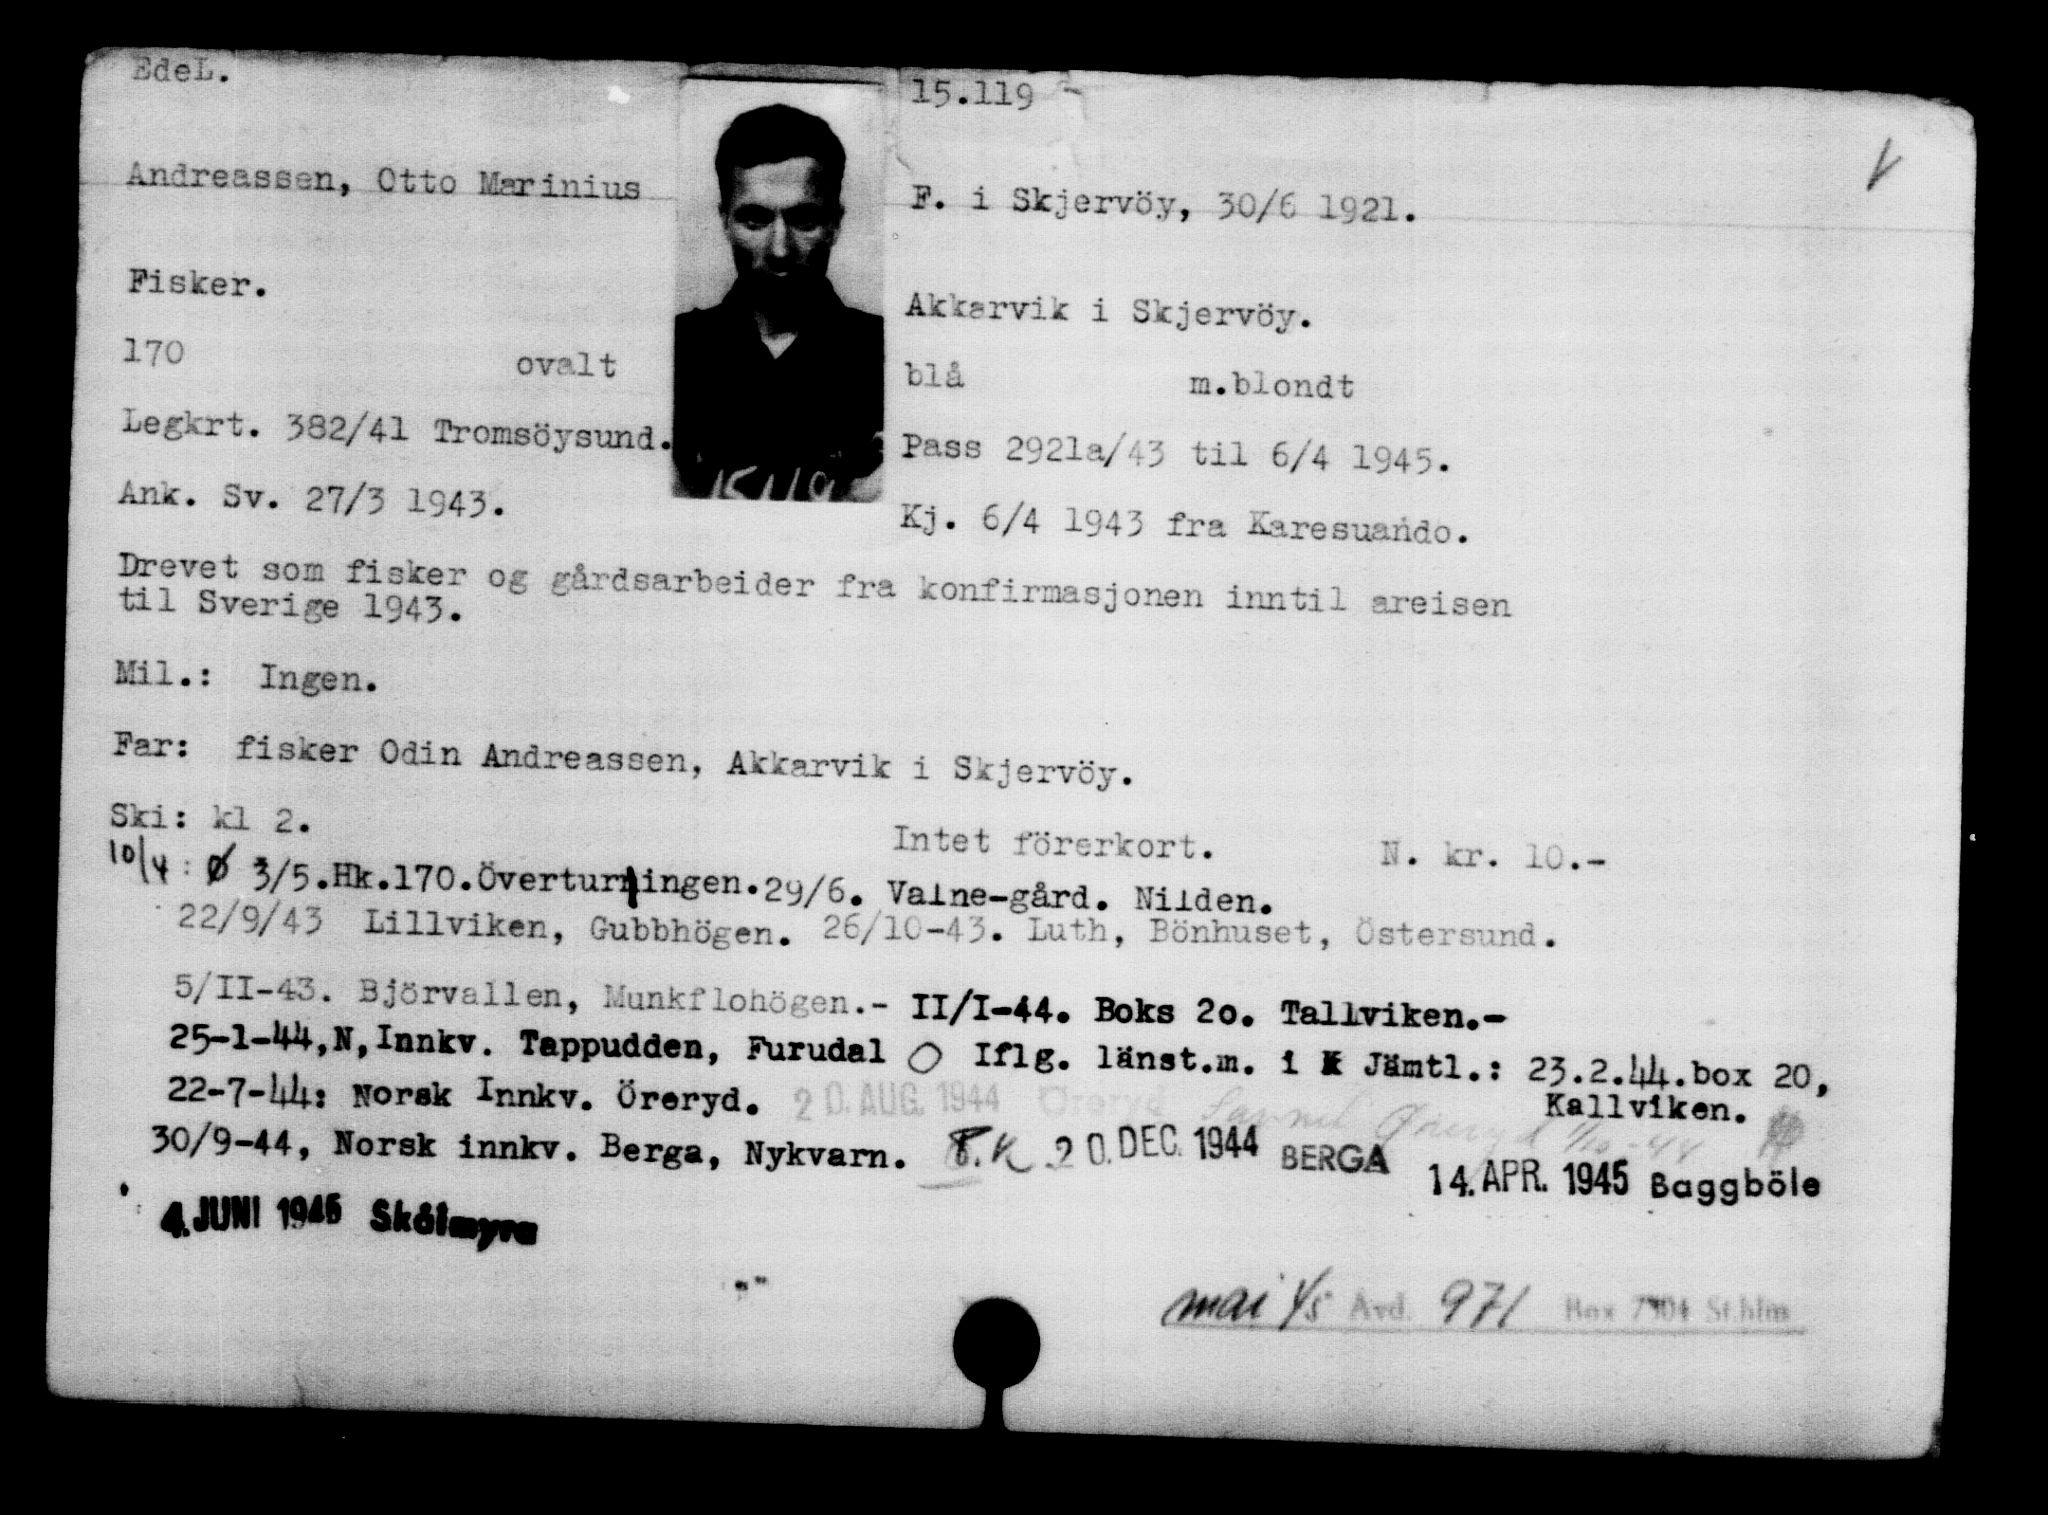 EdeL.
15.119
Andreassen, Otto Marinius
F. i Skjervöy, 30/6 1921.
Fisker.
Akkarvik i Skjervöy.
170 ovalt
blå m.blondt
Legkrt. 382/41 Tromsöysund.
Pass 2921a/43 til 6/4 1945.
Ank. Sv. 27/3 1943.
Kj. 6/4 1943 fra Karesuando.
15119
Drevet som fisker og gårdsarbeider fra konfirmasjonen inntil areisen
til Sverige 1943.
Mil.: Ingen.
Far: fisker Odin Andreassen, Akkarvik i Skjervöy.
Ski: kl 2.
Intet förerkort. N. kr. 10.-
10/4 : Ø 3/5.Hk.170.Överturingen.29/6. Valne-gård. Nilden.
22/9/43 Lillviken, Gubbhögen. 26/10-43. Luth, Bönhuset, Östersund.
5/II-43. Björvallen, Munkflohögen.- II/I-44. Boks 2o. Tallviken.-
25-1-44,N,Innkv. Tappudden, Furudal O Iflg. länst.m. i Jämtl.: 23.2.44.box 20,
Kallviken.
22-7-44: Norsk Innkv. Öreryd. 20. AUG. 1944 Öreryd 1/10-44
30/9-44, Norsk innkv. Berga, Nykvarn. T.K 20. DEC. 1944 BERGA 14. APR. 1945 Baggböle
4. JUNI 1945 Skålmyra
mai 45 Avd. 971 Box 7904 St.hlm